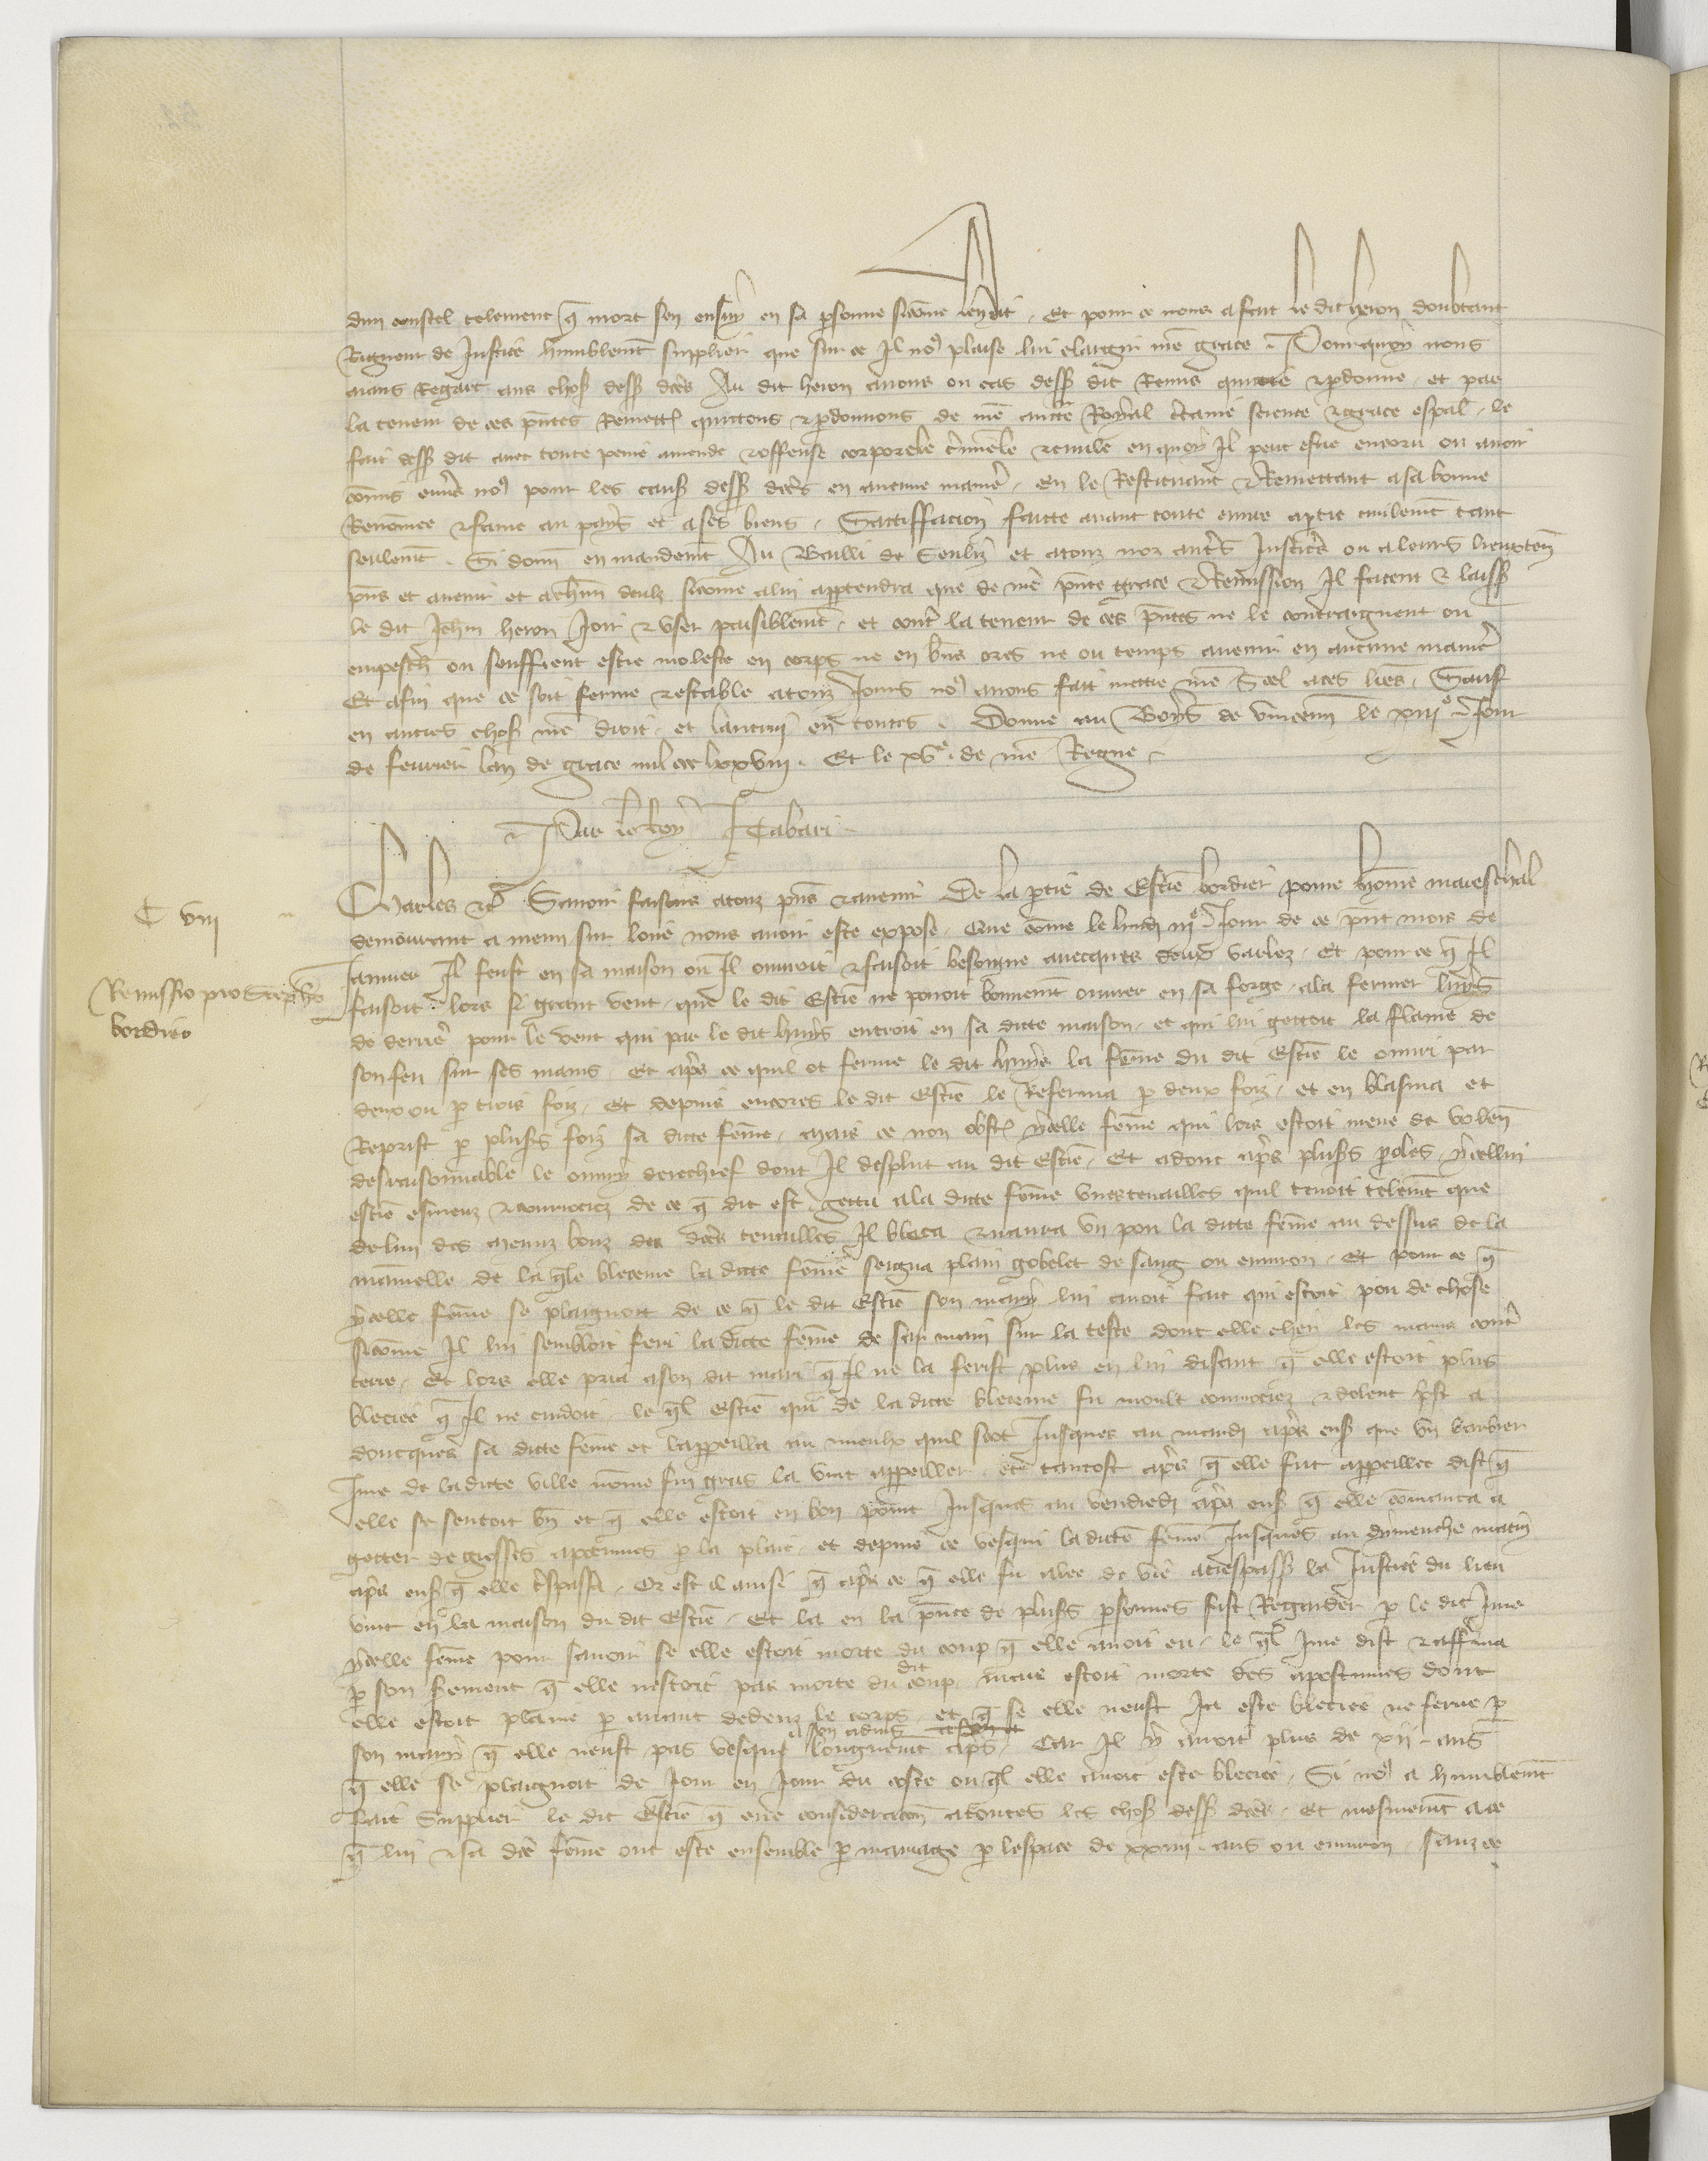 dun coustel telement q̄ mort sen ensuy en sa p̱sonne sicōme len dit . Et pour ce nous a fait le dit heron doubtant
Rigueur de Justice humblemēt supplier que sur ce Il noꝯ plaise lui elargir nr̄e grace . Pourquoy nous
aians Regart aus choses dess̄ dc̄es Au dit heron avons ou cas dess̄ dit Remis quictie & p̱donne . et par
la teneur de ces p̄ntes Remett̄ quictons & p̱donnons de nr̄e auct̄e Royal c̄taine science & grace esp̄al . le
fait dess̄ dit avec toute peine amende & offense corporele c̄minele & civile en quoy Il peut estre encoru ou avoir
cōmis env̄s noꝯ pour les causes dess̄ dc̄es en aucune manie͛ . En le Restituant & Remettant a sa bonne
Renōmee & fame au pays et a ses biens . Sattiffacion faitte avant toute euvre a p̱tie civilemēt tant
seulemt̄ . Si donn̄ en mandemt̄ Au Bailli de Senliz et a touz noz autr̄s Justic̄rs ou a leurs lieuxten̄
p̄ns et avenir et a ch̄un deulz sicōme a lui app̱tendra que de nr̄e p̄nte grace & Remission Il facent & laiss̄
le dit Jehan heron Joir & user paisiblemt̄ . et contr̄ la teneur de ces p̄ntes ne le contraignent ou
empesch̄ ou seuffrent estre moleste en corps ne en biens ores ne ou temps avenir en aucune manie͛
Et afin que ce soit ferme & estable a touz Jours noꝯ avons fait mettre nr̄e Seel a ces lr̄es . Sauf
en autres choses nr̄e droit . et lautrui en toutes . Donne au Boys de vincenn̄ le xiiiiᵉ Jour
de fevrier lan de grace mil ccc lxxviii . Et le xvᵉ . de nr̄e Regne .
Par le Roy J Tabari
C viii
Charles &c̄ . Savoir faisons a touz p̄ns & avenir De la p̱tie de Estiē bordier povre hōme mareschal
demourant a meun sur loire nous avoir este expose . Que cōme le lundi iiiᵉ Jour de ce p̄nt mois de
Janvier Il feust en sa maison ou Il ouvroit & faisoit besongne avecques deux varlez . Et pour ce q̄ Il
Remissio pro Stephano
bordier
faisoit lors si grant vent . que le dit Estiē ne povoit bonnemt̄ ouvrer en sa forge . ala fermer luys
de derrie͛ pour le vent qui par le dit huys entroit en sa dicte maison . et qui lui gettoit la flame de
son feu sur ses mains . Et ap̄s ce quil ot ferme le dit huys la fēme du dit Estiē le ouvri par
deux ou p̱ trois foiz . Et depuis encores le dit Estiē le Referma p̱ deux foiz . et en blasma et
Reprist p̱ plus̄s foiz sa dicte fēme . mais ce non obst̄ ycelle fēme qui lors estoit meue de volen̄
desraisonnable le ouvry derechief dont Il desplut au dit Estiē . Et adonc ap̄s plus̄s p̱oles . ycellui
estiē esmeuz & courrociez de ce q̄ dit est . getta a la dicte fēme unes tenailles quil tenoit telemt̄ que
de lun des menuz bouz des dc̄es tenailles Il bleca & navra un pou la dicte fēme au dessus de la
māmelle de la q̄le bleceure la dicte fēme seigna plain gobelet de sang ou environ . Et pour ce q̄
ycelle fēme se plaignoit de ce q̄ le dit Estiē son mary lui avoit fait qui estoit pou de chose
sicōme Il lui sembloit feri la dicte fēme de sa main sur la teste dont elle chei les mains contr̄
terre . Et lors elle pria a son dit mari q̄ Il ne la ferist plus en lui disant q̄ elle estoit plus
bleciee q̄ Il ne cuidoit . le q̄l Estiē qui de la dicte bleceure fu moult courrociez & dolent prist a
doncques sa dicte fēme et lappeilla au mieulx quil scot Jusques au mardi ap̄s ens̄ que un barbier
Jure de la dicte ville nōme fin gras la vint appeiller . et tantost ap̄s q̄ elle fut appeillee dist q̄
elle se sentoit bn̄ et q̄ elle estoit en bon point Jusques au vendredi ap̄s ens̄ q̄ elle cōmenca a
getter de grosses apostumes p̱ la plaie . et depuis ce vesqui la dicte fēme Jusques au dymenche matin
ap̄s ens̄ q̄ elle t̄spassa . Or est il ainsi q̄ ap̄s ce q̄ elle fu alee de vie a trespass̄ la Justice du lieu
vint en la maison du dit Estiē . Et la en la p̄nce de plus̄s p̱sonnes fist Regarder p̱ le dit Jure
ycelle fēme pour savoir se elle estoit morte du coup q̄ elle avoit eu . le q̄l Jure dist & afferma
p̱ son serement q̄ elle nestoit pas morte du dit coup . mais estoit morte des apostumes dont
elle estoit plaine p̱ avant dedenz le corps . et q̄ se elle neust Ja este bleciee ne ferue p̱
son mary q̄ elle neust pas vesqu a son advis longuemt̄ ap̄s . Car Il y avoit plus de xii . ans
q̄ elle se plaignoit de Jour en Jour du coste ou q̄l elle avoit este bleciee . Si noꝯ a humblemēt
fait Supplier le dit Estiē q̄ eue consideracion a toutes les choses dess̄ dc̄es . Et mesmemt̄ a ce
q̄ lui & sa dc̄e fēme ont este ensemble p̱ mariage p̱ lespace de xxiiii . ans ou environ . sanz ce